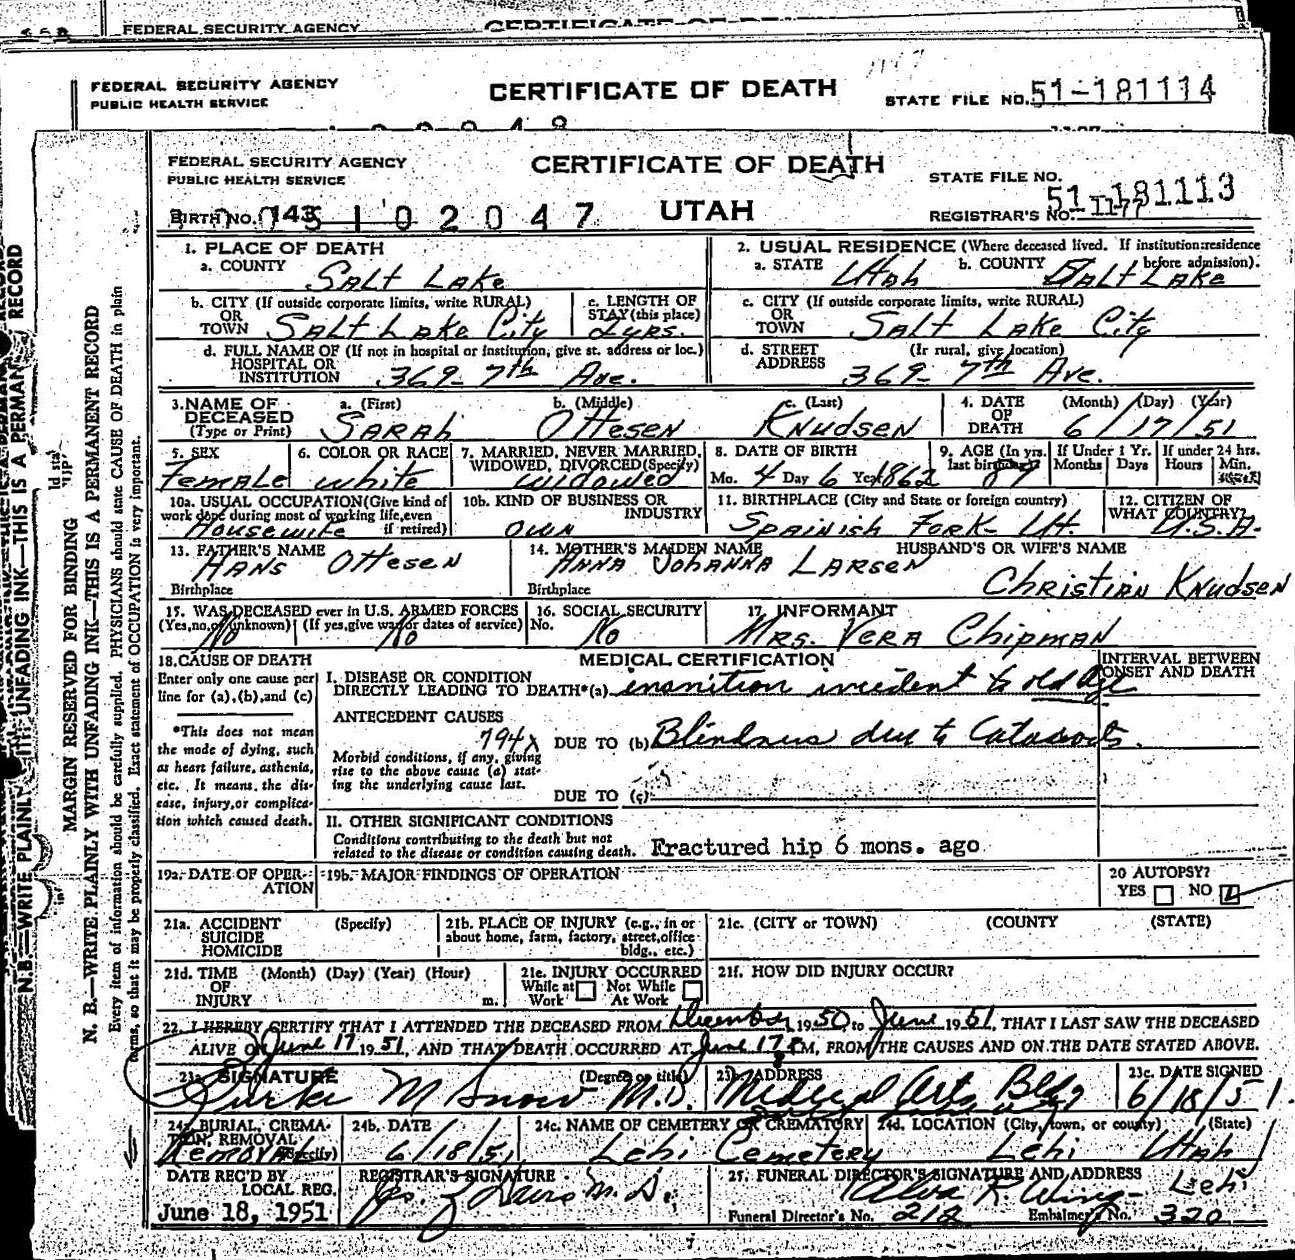 FEDERAL SECURITY AGENCY
FEDERAL SECURITY AGENCY CERTIFICATE OF DEATH
PUBLIC HEALTH SERVICE STATE FILE NO. 51-181114
FEDERAL SECURITY AGENCY CERTIFICATE OF DEATH
PUBLIC HEALTH SERVICE STATE FILE NO. 51-181113
BIRTH NO. 143 5102047 UTAH REGISTRAR'S NO. 1177
1. PLACE OF DEATH 2. USUAL RESIDENCE (Where deceased lived. If institution:residence before admission).
a. COUNTY Salt Lake a. STATE Utah b. COUNTY Salt Lake
b. CITY (If outside corporate limits, write RURAL) OR TOWN Salt Lake City c. LENGTH OF STAY (this place) 2 yrs. c. CITY (If outside corporate limits, write RURAL) OR TOWN Salt Lake City
d. FULL NAME OF (If not in hospital or institution, give st. address or loc.) HOSPITAL OR INSTITUTION 369-7th Ave. d. STREET ADDRESS (If rural, give location) 369-7th Ave.
3. NAME OF DECEASED (Type or Print) a. (First) Sarah b. (Middle) Ottesen c. (Last) Knudsen 4. DATE OF DEATH (Month) (Day) (Year) 6/17/51
5. SEX Female 6. COLOR OR RACE white 7. MARRIED, NEVER MARRIED, WIDOWED, DIVORCED(Specify) widowed 8. DATE OF BIRTH Mo. 4 Day 6 Year 1862 9. AGE (In yrs. last birthday) 89 If Under 1 Yr. Months Days If under 24 hrs. Hours Min.
10a. USUAL OCCUPATION(Give kind of work done during most of working life,even if retired) Housewife 10b. KIND OF BUSINESS OR INDUSTRY own 11. BIRTHPLACE (City and State or foreign country) Spainish Fork Ut. 12. CITIZEN OF WHAT COUNTRY? U.S.A.
13. FATHER'S NAME Hans Ottesen 14. MOTHER'S MAIDEN NAME Anna Johanna Larsen HUSBAND'S OR WIFE'S NAME
Birthplace Birthplace Christian Knudsen
15. WAS DECEASED ever in U.S. ARMED FORCES (Yes,no,or unknown) No (If yes,give war or dates of service) No 16. SOCIAL SECURITY No. No 17. INFORMANT Mrs. Vera Chipman
18. CAUSE OF DEATH MEDICAL CERTIFICATION INTERVAL BETWEEN ONSET AND DEATH
Enter only one cause per line for (a),(b),and (c)
I. DISEASE OR CONDITION
DIRECTLY LEADING TO DEATH*(a) inanition incident to old age
*This does not mean the mode of dying, such as heart failure, asthenia, etc. It means the disease, injury,or complication which caused death.
ANTECEDENT CAUSES
794x DUE TO (b) Blindness due to Cataracts.
Morbid conditions, if any, giving rise to the above cause (a) stating the underlying cause last.
DUE TO (c)
II. OTHER SIGNIFICANT CONDITIONS
Conditions contributing to the death but not related to the disease or condition causing death. Fractured hip 6 mons. ago
19a. DATE OF OPERATION 19b. MAJOR FINDINGS OF OPERATION 20 AUTOPSY? YES NO
21a. ACCIDENT SUICIDE HOMICIDE (Specify) 21b. PLACE OF INJURY (e.g., in or about home, farm, factory, street,office bldg., etc.) 21c. (CITY or TOWN) (COUNTY) (STATE)
21d. TIME OF INJURY (Month) (Day) (Year) (Hour) m. 21e. INJURY OCCURRED While at Work Not While At Work 21f. HOW DID INJURY OCCUR?
22. I HEREBY CERTIFY THAT I ATTENDED THE DECEASED FROM December 1950 to June 1951, THAT I LAST SAW THE DECEASED
ALIVE ON June 17 1951, AND THAT DEATH OCCURRED AT June 17 8 PM, FROM THE CAUSES AND ON THE DATE STATED ABOVE.
23a. SIGNATURE (Degree or title) Burke M Snow M.D. 23b. ADDRESS Medical Arts Bldg 23c. DATE SIGNED 6/18/51.
24a. BURIAL, CREMATION, REMOVAL (Specify) Removal 24b. DATE 6/18/51 24c. NAME OF CEMETERY OR CREMATORY Lehi Cemetery 24d. LOCATION (City, town, or county) (State) Lehi Utah
DATE REC'D BY LOCAL REG. June 18, 1951 REGISTRAR'S SIGNATURE 25. FUNERAL DIRECTOR'S SIGNATURE AND ADDRESS Lehi
Funeral Director's No. 218 Embalmer's No. 320
MARGIN RESERVED FOR BINDING
N. B.—WRITE PLAINLY WITH UNFADING INK—THIS IS A PERMANENT RECORD
Every item of information should be carefully supplied. PHYSICIANS should state CAUSE OF DEATH in plain
terms, so that it may be properly classified. Exact statement of OCCUPATION is very important.